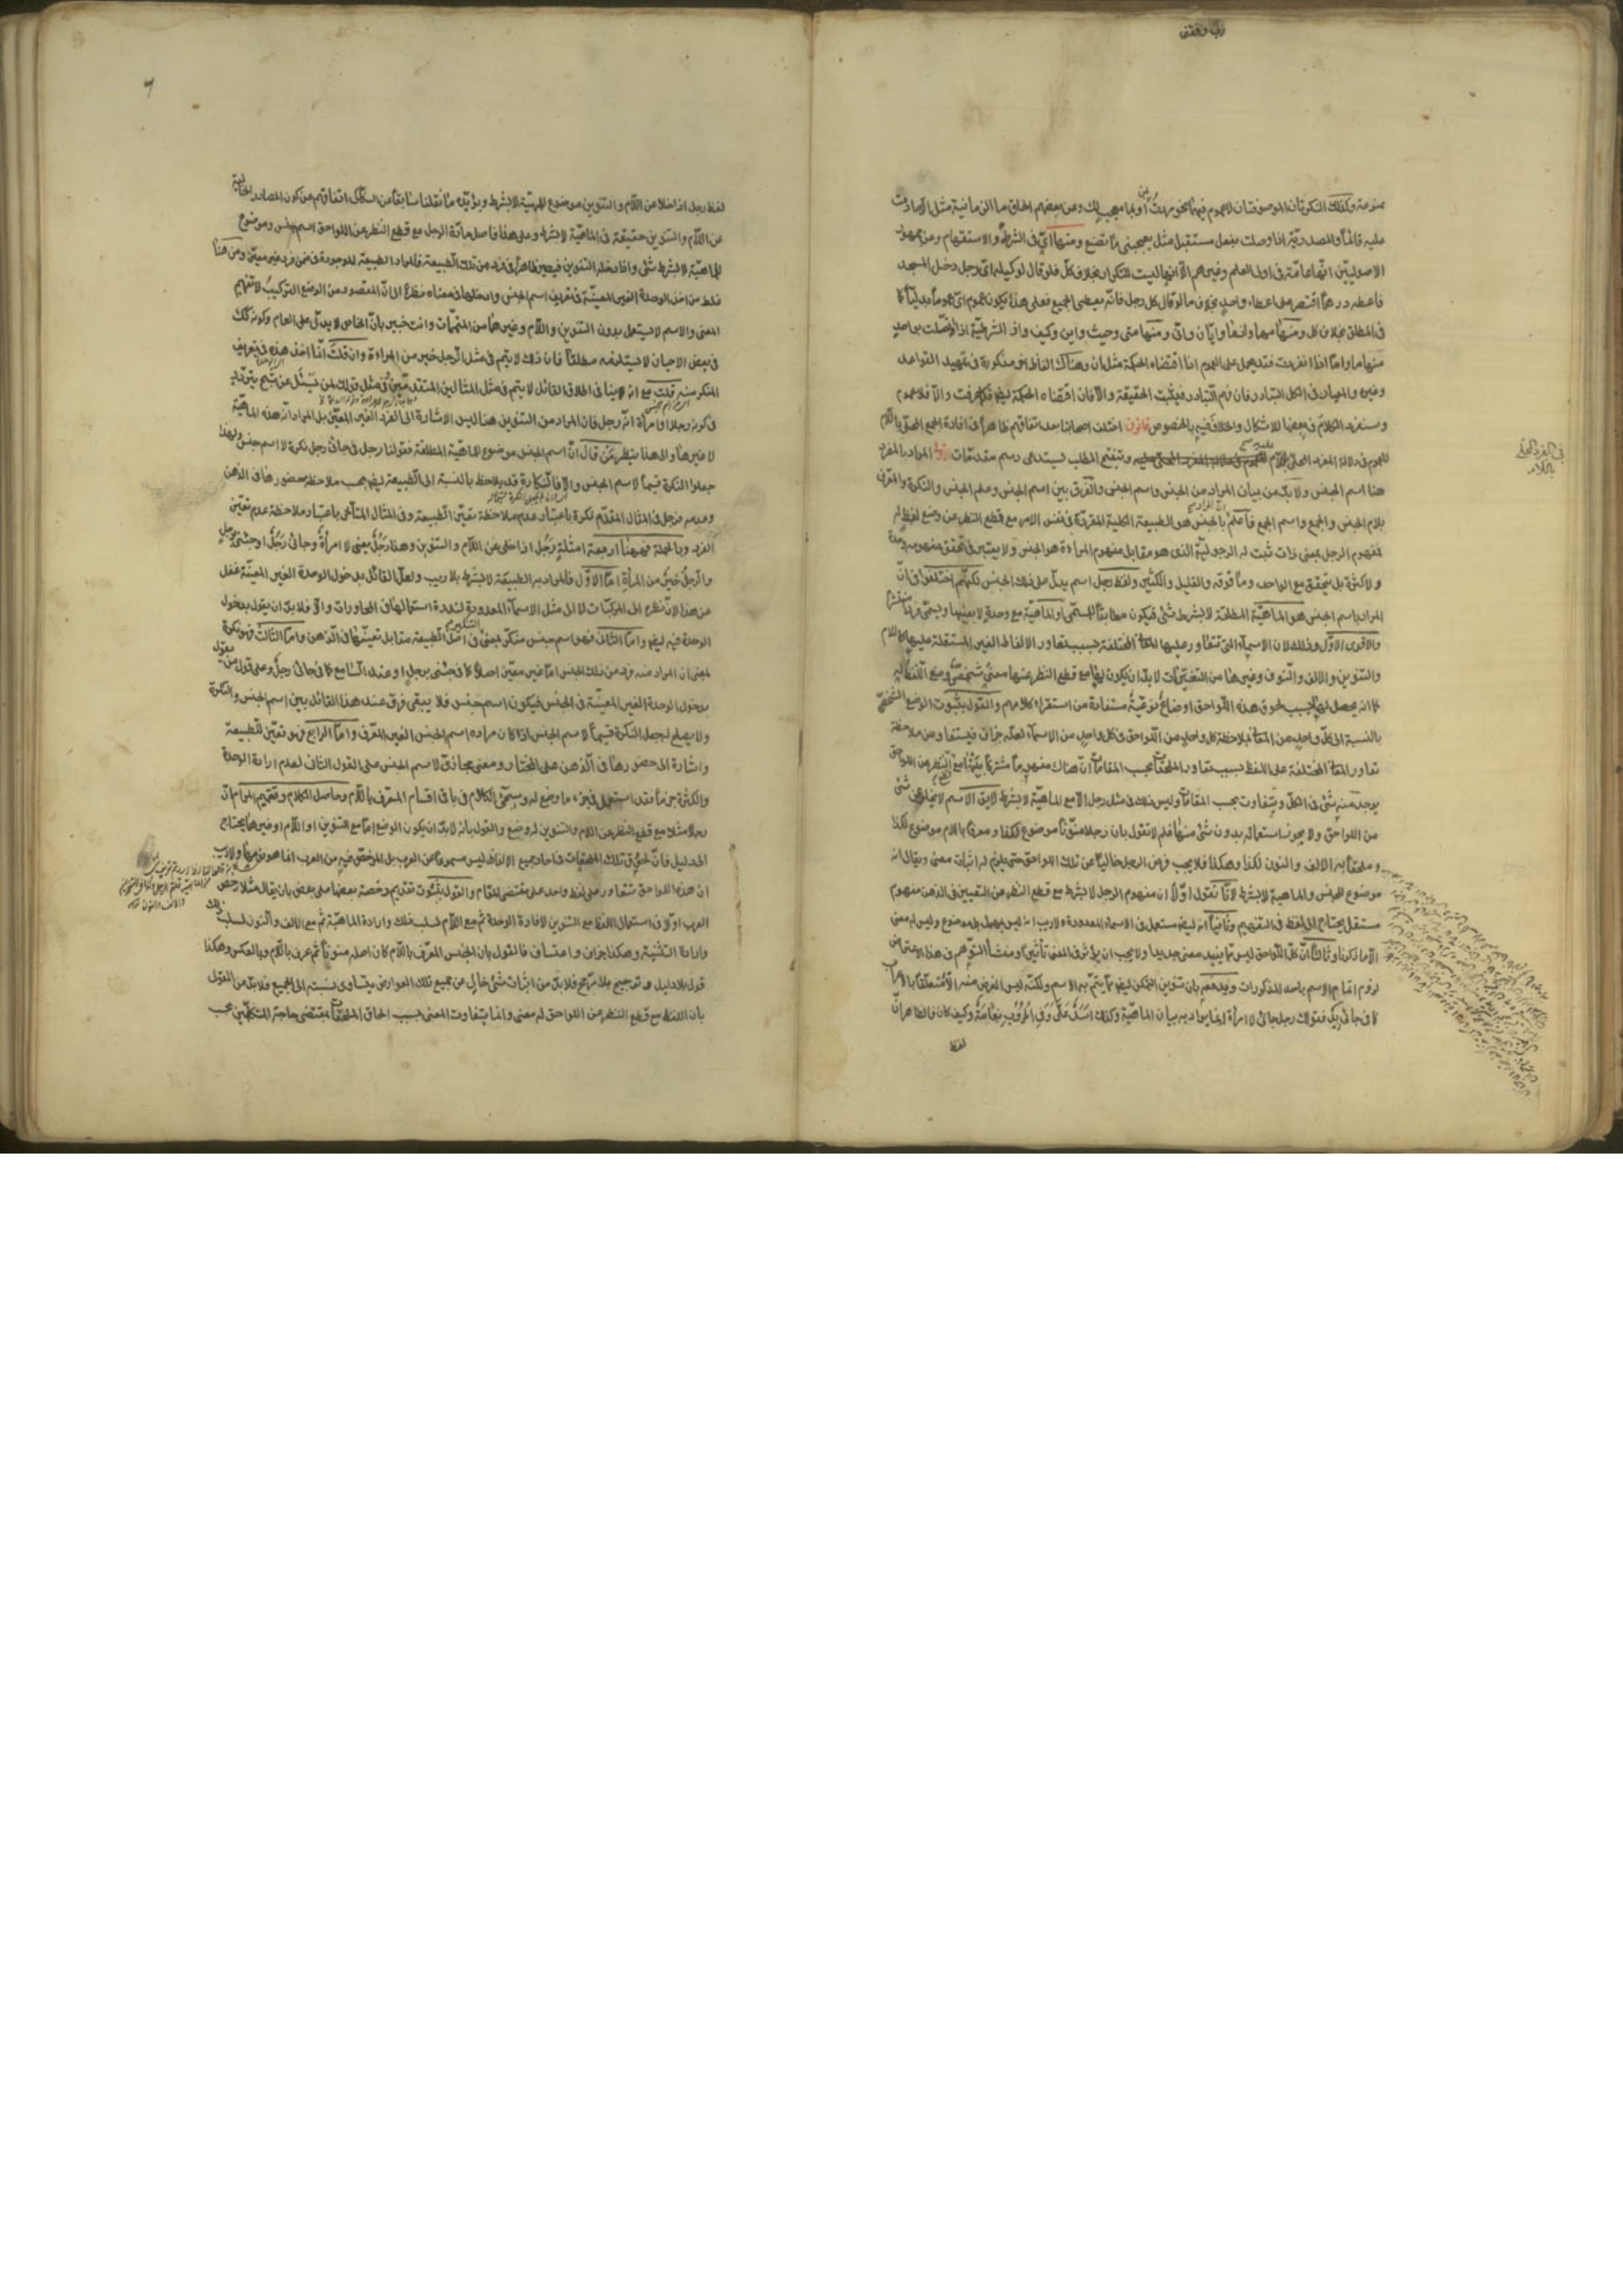 ممنوعة وكذلك النكرتان الموصوفتان لا عموم فيهما نحو مررت بمن أو بما معجب لك وعن بعضهم الحاق ما الزمانية مثل الا ما دمت
عليه قائماً والمصدريّة اذا وصلت بفعل مستقبل مثل يعجبني ما تصنع ومنها أيّ في الشرط والاستفهام وعن جمهور
الاصوليين انّها عامّة في اولى العلم وغيرهم الّا أنها ليست للتكرار بخلاف كلّ فلو قال لوكيله ايّ رجل دخل المسجد
فاعطه درهماً اقتصر على اعطاء واحد بخلاف ما لو قال كل رجل فانّه يعطى الجميع فعلى هذا يكون عموم ايّ عموماً بدلياً كا
في المطلق بخلاف كل ومنها مهما واينما وايّان وانّى ومنها متى وحيث واين وكيف واذ الشرطيّة اذا اتّصلت بواحد
منها ما واما اذا انفردت فقد يحمل على العموم اذا اقتضاه الحكمة مثل ان وهناك الفاظ اخر مذكورة في تمهيد القواعد
وغيره والمعيار في الكل التبادر فان فهم التبادر فيثبت الحقيقة والّا فان اقتضاه الحكمة ايضا فكما عرفت والّا فلا عموم
وسنفرد الكلام في بعضها للاشكال والخلاف فيه بالخصوص قانون اختلف اصحابنا بعد اتفاقهم ظاهراً في افادة الجمع المحلّى باللّام
للعموم في دلالة المفرد المحلّى باللّام عليه وتنقيح المطلب يستدعى رسم مقدمات اولها المراد بالمفرد
هنا اسم الجنس ولا بدّ من بيان المراد من الجنس واسم الجنس والفرق بين اسم الجنس وعلم الجنس والنكرة والمعرّف
بلام الجنس والجمع واسم الجمع فاعلم انّ المراد بالجنس هو الطبيعة الكلية المقررة في نفس الامر مع قطع النظر عن وضع لفظ له
فمفهوم الرجل بمعنى ذات ثبت له الرجولية الذي هو مقابل مفهوم المراءة هو الجنس ولا يعتبر في تحقق مفهومه وحدة
ولا كثرة بل يتحقق مع الواحد وما فوقه والقليل والكثير ولفظ رجل اسم يدلّ على ذلك الجنس لكنّهم اختلفوا في انّ
المراد باسم الجنس هو الماهيّة المطلقة لا بشرط شئ فيكون مطابقاً للمسمّى او الماهيّة مع وحدة لا بعينها ويسمّى فرداً منتشراً
والاقوى الاوّل وذلك لان الاسماء التي تتعاور عليها المعاني المختلفة بسبب تعاور الالفاظ الغير المستقلة عليها كاللام
والتنوين والالف والنون وغيرها من التغيّرات لا بدّ ان يكون لها مع قطع النظر عنها معنى شخصىّ وضع اللفظ له
كما انه يحصل لها بسبب لحوق هذه اللّواحق اوضاعٌ نوعيّةٌ مستفادة من استقراء كلامهم والقول بثبوت الوضع الشخصّى
بالنسبة الى كلّ واحد من المعاني بملاحظة كل واحد من اللّواحق في كل واحد من الاسماء لعلّه جزاف فيستفاد من ملاحظة
تعاور المعاني المختلفة على اللفظ بسبب تعاور الملحقات بحسب المقامات انّ هناك مفهوماً مشتركاً بينها مع قطع النظر عن اللواحق
يوجد منه شئ في الكلّ ويتفاوت بحسب المقامات وليس ذلك في مثل رجل الّا مع الماهيّة لا بشرط لا يقال الاسم لا يخلو عن شئ
من اللواحق ولا يجوز استعماله بدون شئ منها فلم لا تقول بان رجلا منوّناً موضوع لكذا ومعرفا باللام موضوع لكذا
وملحقا به الالف والنون لكذا وهكذا فلا يجب فرض الرجل خالياً عن تلك اللواحق حتى يلزم له اثبات معنى ويقال انه
موضوع للجنس والماهية لا بشرط لانّا نقول اوّلاً ان مفهوم الرجل لا بشرط مع قطع النظر عن التعيين في الذهن مفهوم
مستقل يحتاج الى لفظ في التفهيم وثانياً انه ايضا مستعمل في الاسماء المعدودة ولا ريب انه ليس بمهمل بل موضوع وليس له معنى
الّا ما ذكرنا وثالثاً انّ كلّ اللّواحق ليس مما يفيد معنى جديدا ولا يجب ان يؤثر في المعنى تأثيراً ومنشأ التوهم في هذا الاعتراض
لزوم اتمام الاسم باحد المذكورات ويدفعه بان تنوين التمكن ايضا مما يتمّ به الاسم ولكنّه ليس الغرض منه الّا تمتعلقاً بالاعراب
كما في جائني زيد فقولك رجل جائني لا امرأة انّما يراد به بيان الماهيّة وكذلك وكيف كان فالظاهر انّ
لفظ
في المفرد المحلّى
باللام
لفظ رجل اذا خلا عن اللّام والتنوين موضوع للمهيّة لا بشرط ويؤيّده ما نقلنا سابقاً من السكّاكى اتفاقهم من كون المصادر الخالية
عن اللّام والتنوين حقيقة في الماهيّة لا بشرط وعلى هذا فاصل مادّة الرجل مع قطع النظر عن اللواحق اسم جنس وموضوع
للماهيّة لا بشرط شئ واذا دخله التنوين فيصير ظاهراً في فرد من تلك الطّبيعة فالمراد الطبيعة الموجودة في ضمن فرد غير معيّن ومن هنا
غلط من اخذ الوحدة الغير المعيّنة في تعريف اسم الجنس وادخلها في معناه نظراً الى انّ المقصود من الوضع التركيب لا تفهيم
المعنى والاسم لا يستعمل بدون التنوين واللّام وغيرها من المتمّات وانت خبير بانّ الخاص لا يدلّ على العام وكونه كك
في بعض الاحيان لا يستلزمه مطلقاً فان ذلك لا يتم في مثل الرّجل خير من المراءة وان قلت انّا اخذ هذه في تعريف
المنكر منه قلت مع انه لا ينافى اطلاق القائل لا يتم في مثل المثالين المتقدّمين وفي مثل قولك لمن يسئل عن شبح يتردّد
في كونه رجلا او امرأة انّه رجل فان المراد من التنوين هنا ليس الاشارة الى الفرد الغير المعيّن بل المراد انّه هذه الماهيّة
لا غيرها والى هذا ينظر من قال انّ اسم الجنس موضوع للماهيّة المطلقة فقولنا رجل في جائني رجل نكرة لا اسم جنس ولهذا
جعلوا النكرة قسيماً لاسم الجنس والّا فالنكارة قد يلاحظ بالنسبة الى الطّبيعة ايضا بحسب ملاحظة حضورها في الذهن
وعدمه فرجل في المثال المقدّم نكرة باعتبار عدم ملاحظة تعيّن الطّبيعة وفي المثال المتأخر باعتبار ملاحظة عدم تعيّن
الفرد وبالجملة فهيهنا اربعة امثلة رجل اذا خلى عن اللّام والتنوين وهذا رجلٌ بمعنى لا امرأة وجائني رجلٌ او جئني برجلٍ
والرجلُ خيرٌ من المرأة امّا الاوّل فالمراد به الطبيعة لا بشرط بلا ريب ولعلّ القائل بدخول الوحدة الغير المعيّنة غفل
عن هذا لانّ نظره الى المركبات لا الى مثل الاسماء المعدودة لندرة استعمالها في المحاورات والّا فلا بدّ ان يقول بدخول
الوحدة فيه ايضا وامّا الثاني فهو اسم جنس منكّر بمعنى انّ التنكير في اصل الطّبيعة مقابل تعيّنها في الذّهن وامّا الثالث فهو نكرة
بمعنى ان المراد منه فرد من ذلك الجنس امّا غير معيّن اصلاً كما في جئنى برجلٍ او عند السّامع كما في جائني رجلٌ وعلى قول من يقول
بدخول الوحدة الغير المعيّنة في الجنس فيكون اسم جنس فلا يبقى فرق عند هذا القائل بين اسم الجنس والنكرة
ولا يصلح لجعل النكرة قسيماً لاسم الجنس الّا اذا كان مراده اسم الجنس الغير المعرّف وامّا الرابع فهو تعيّن للطّبيعة
واشارة الى حضورها في الذهن على المختار ومعنى مجازىّ لاسم الجنس على القول الثاني لعدم ارادة الوحدة
والكثرة جزماً فقد استعمل في جزء ما وضع له وسيجئ الكلام في باقى اقسام المعرّف باللّام وحاصل الكلام وتتميم المرام انّ
رجلا مثلا مع قطع النظر عن اللام والتنوين له وضع والقول بانه لا بدّ ان يكون الوضع امّا مع التنوين او اللّام او غيرهما يحتاج
الى دليل فانّ لحوق تلك الملحقات في آحاد جميع الالفاظ ليس مسموعاً من العرب بل المرخّص فيه من العرب انما هو نوعها ولا ريب
ان هذه اللواحق تتعاور على لفظ واحد على مقتضى المقام والقول بثبوت تقديم رخصة بعضها على بعض بان يقال مثلا رخص
العرب اولا في استعمال اللفظ مع التنوين لافادة الوحدة ثم مع اللّام لسلب ذلك وارادة الماهيّة ثم مع الالف والنون لسلب ذلك
وارادة التثنية وهكذا جزاف واعتساف فالقول بان الجنس المعرّف باللّام كان اصله منوناً ثم عرف باللّام وبالعكس وهكذا
قول بلا دليل وترجيح بلا مرجّح فلا بدّ من اثبات شئ خال من جميع تلك العوارض يتساوى نسبته الى الجميع فلا بدّ من القول
بان اللفظ مع قطع النظر عن اللواحق له معنى وانما يتفاوت المعنى بسبب الحاق الملحقات بمقتضى حاجة المتكلّمين بحسب